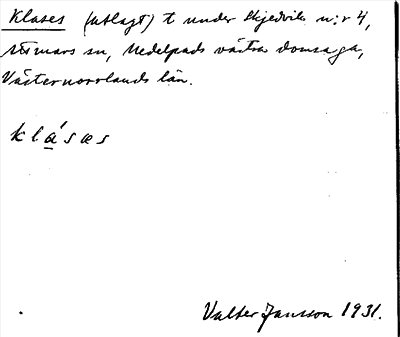 Klases (utlagt) t under Skjedvik n:r 4,
Attmars sn, Medelpads västra domsaga,
Västernorrlands län.
klásæs
Valter Jansson 1931.